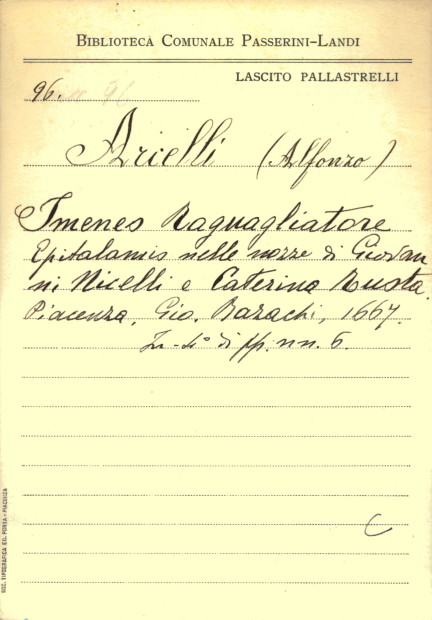 BIBLIOTECA COMUNALE PASSERINI-LANDI
LASCITO PALLASTRELLI
96.
Arcelli (Alfonzo)
Imenes Raguagliatore
Epitalamio nelle nozze di Giovan
ni Nicelli e Caterina Rusta.
Piacenza, Gio. Bazachi, 1667.
In-4° di pp. nn. 6.
C
SOC. TIPOGRAFICA ED. PORTA - PIACENZA